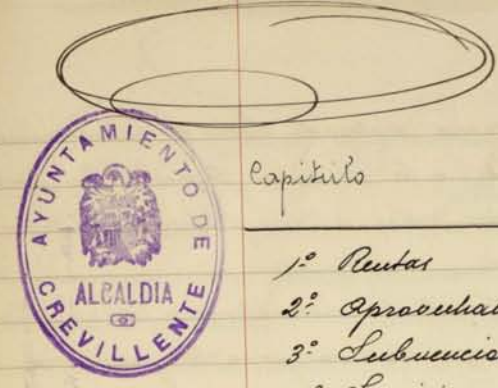 AYUNTAMIENTO DE CREVILLENTE
ALCALDIA
Capitulo
1º Rentas
2º aprovecha
3º Subvencio